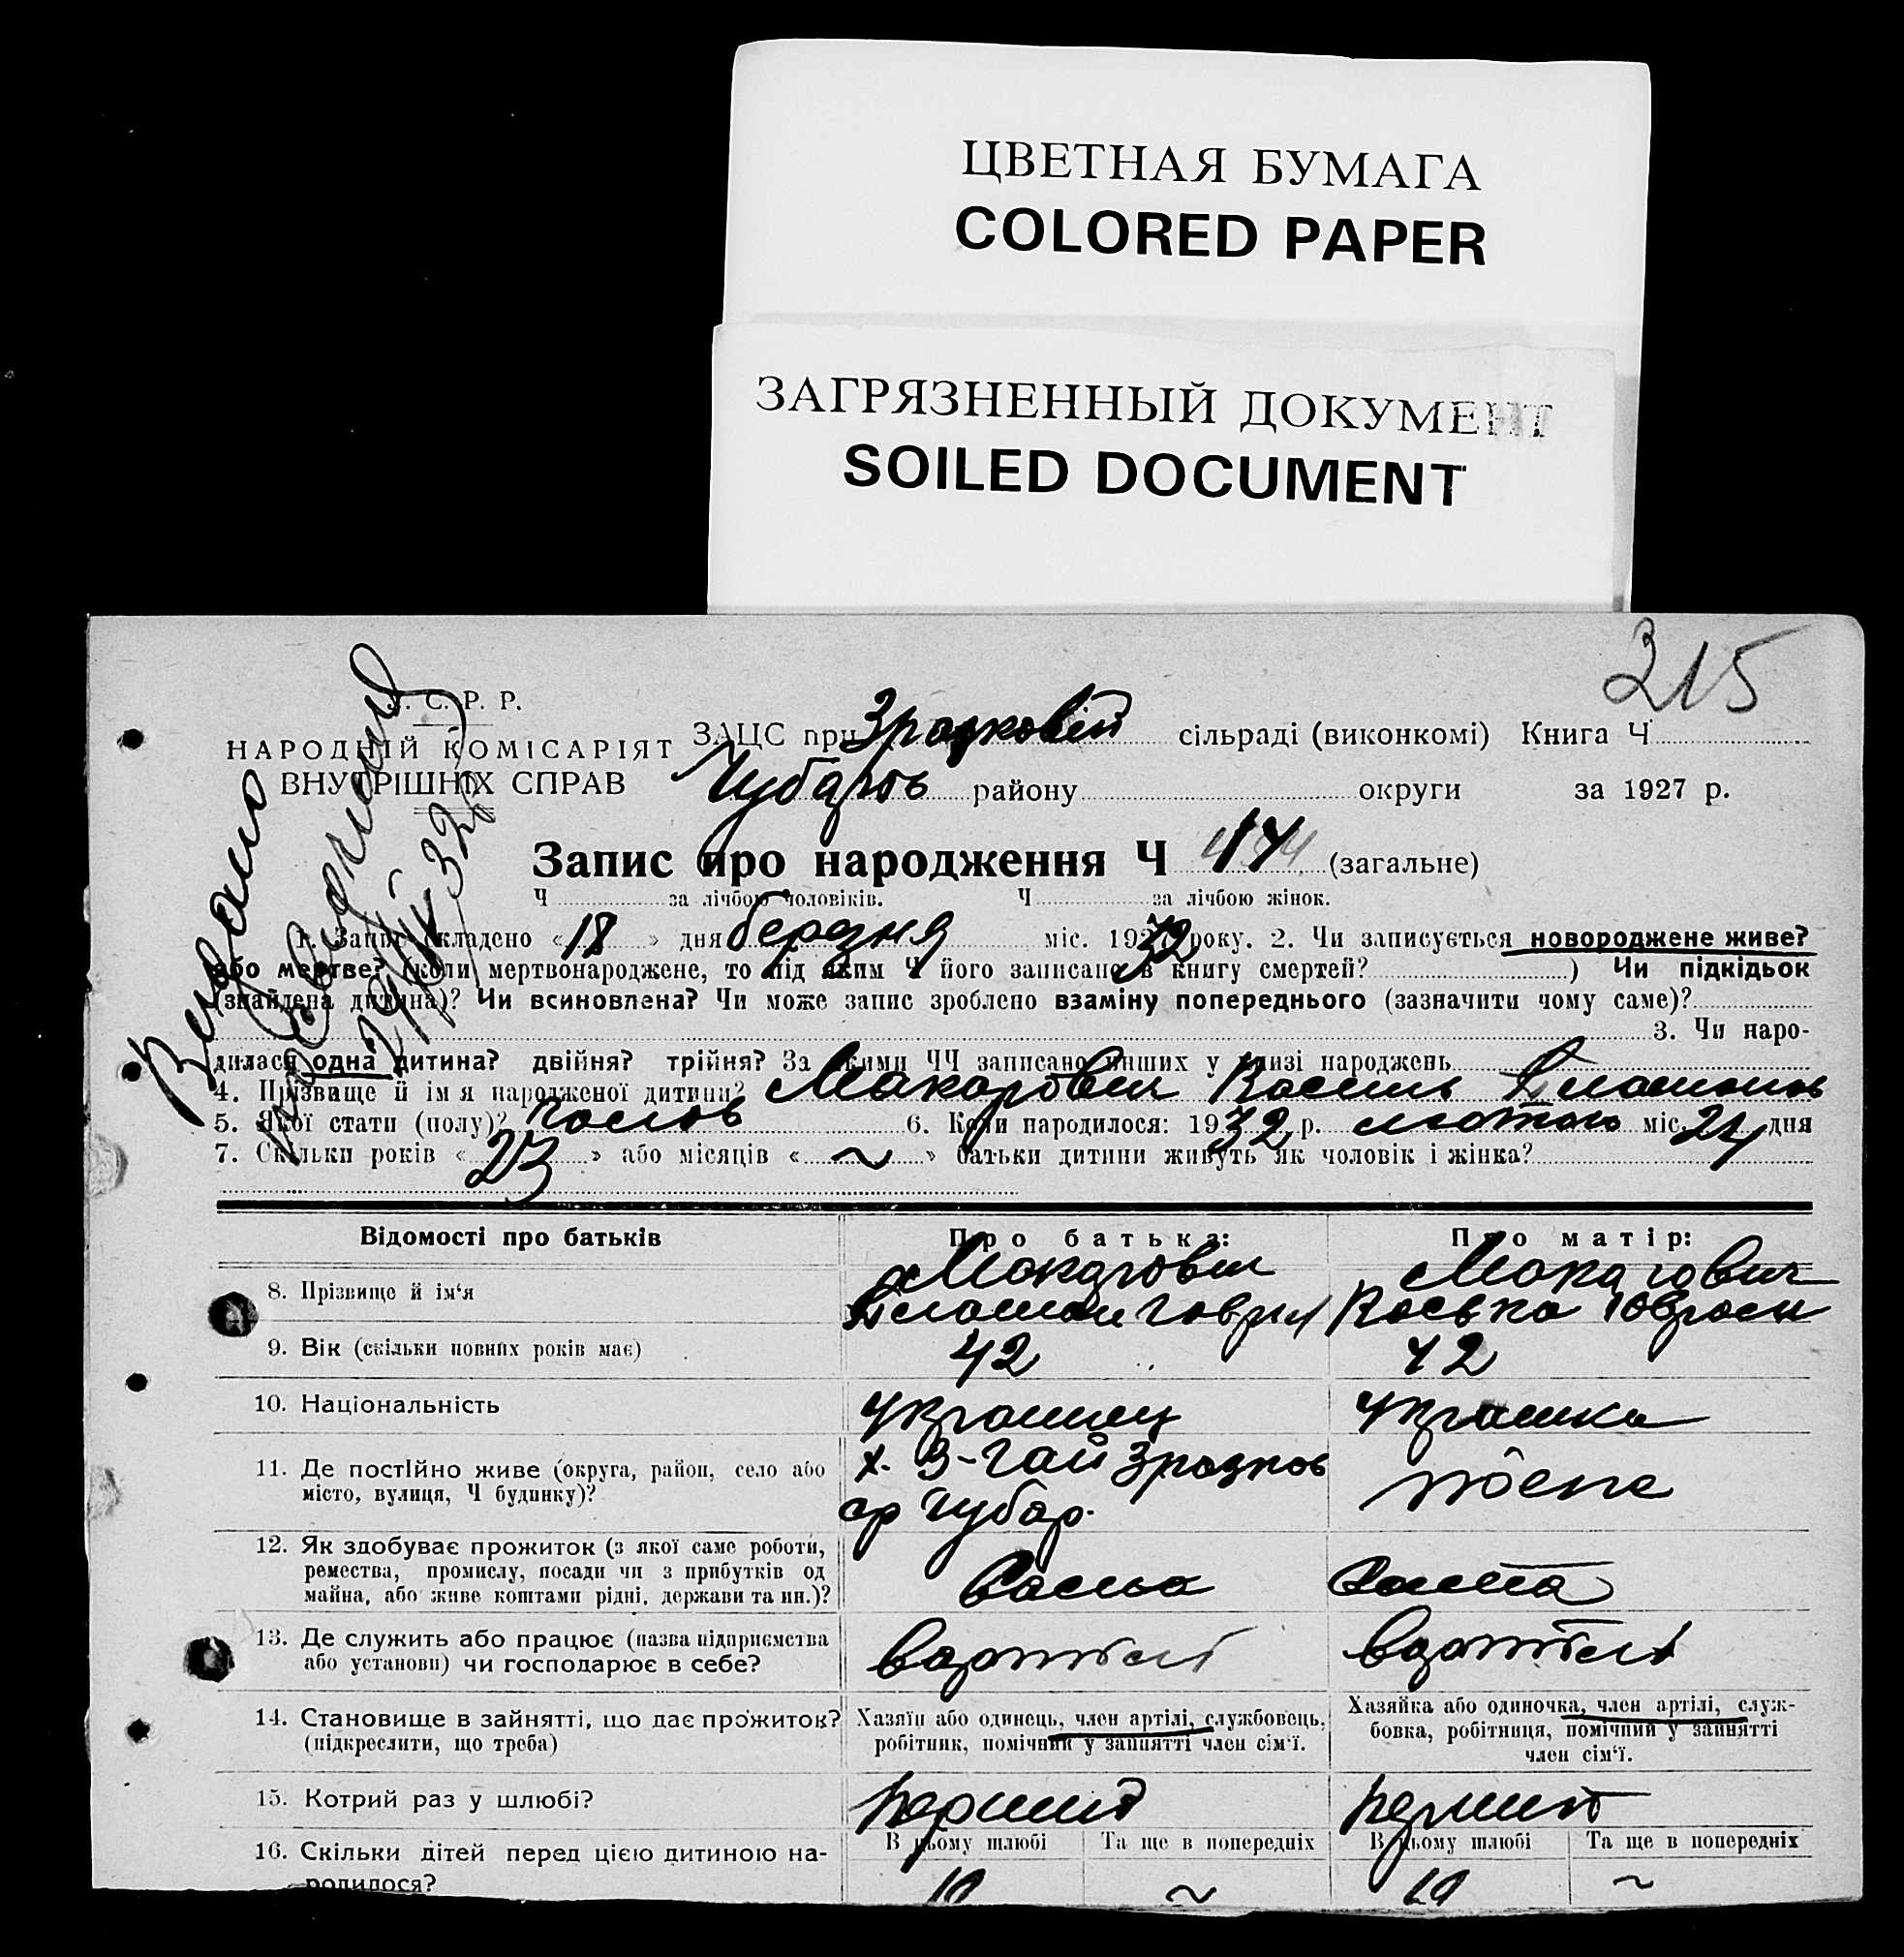 ЦВЕТНАЯ БУМАГА
COLORED PAPER
ЗАГРЯЗНЕННЫЙ ДОКУМЕНТ
SOILED DOCUMENT
215
С. Р. Р.
НАРОДНІЙ КОМІСАРІЯТ
ВНУТРІШНІХ СПРАВ
ЗАЦС при Зразковій сільраді (виконкомі) Книга Ч
Чубарів району округи за 1927 р.
Видано
Запис про народження Ч 14 (загальне)
Ч за лічбою чоловіків. Ч за лічбою жінок.
1. Запис складено «18» дня березня міс. 1932 року. 2. Чи записується новороджене живе?
або мертве? (коли мертвонароджене, то під яким Ч його записано в книгу смертей? ) Чи підкідьок
(знайдена дитина)? Чи всиновлена? Чи може запис зроблено взаміну попереднього (зазначити чому саме)?
3. Чи наро-
дилася одна дитина? двійня? трійня? За якими ЧЧ записано инших у книзі народжень
4. Прізвище й ім'я народженої дитини? Макарович
5. Якої стати (полу)? 6. Коли народилося: 1932 р. лютого міс. 24 дня
7. Скільки років «23» або місяців «~» батьки дитини живуть як чоловік і жінка?
Відомості про батьків Про батька: Про матір:
8. Прізвище й ім'я Макарович Макарович
9. Вік (скільки повних років має) 42 42
10. Національність українец українка
11. Де постійно живе (округа, район, село або місто, вулиця, Ч будинку)? х. В-Гай Зразков
ср Чубар.
12. Як здобуває прожиток (з якої саме роботи,
ремества, промислу, посади чи з прибутків од
майна, або живе коштами рідні, держави та ин.)?
13. Де служить або працює (назва підприємства
або установи) чи господарює в себе? вартілі вартілі
14. Становище в зайнятті, що дає прожиток?
(підкреслити, що треба)
Хазяїн або одинець, член артілі, службовець,
робітник, помічний у зайнятті член сім'ї.
Хазяйка або одиночка, член артілі, служ-
бовка, робітниця, помічний у зайнятті
член сім'ї.
15. Котрий раз у шлюбі? первий первий
16. Скільки дітей перед цією дитиною на-
родилося?
В цьому шлюбі Та ще в попередніх В цьому шлюбі Та ще в попередніх
10 ~ 10 ~